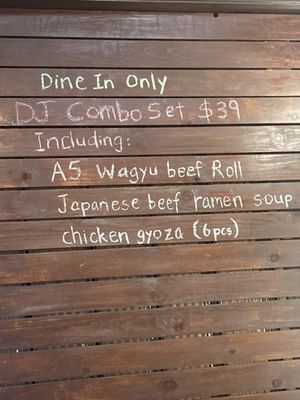 Dine In Only
DJ Combo Set $39
Including:
A5 Wagyu beef Roll
Japanese beef ramen soup
chicken gyoza (6pcs)